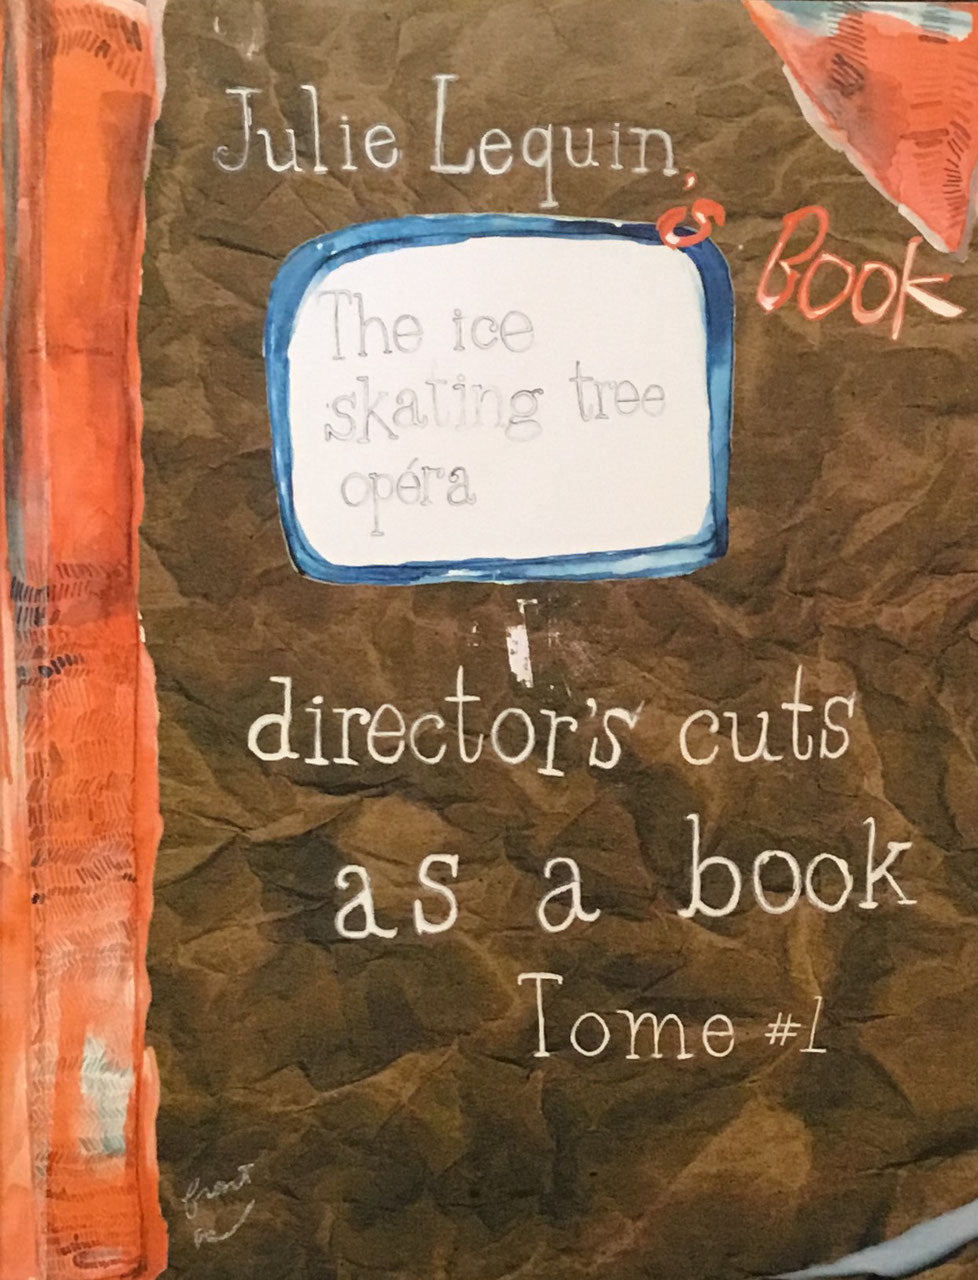 Julie Lequin,
's Book
The ice
skating tree
opéra
director's cuts
as a book
Tome #1
front